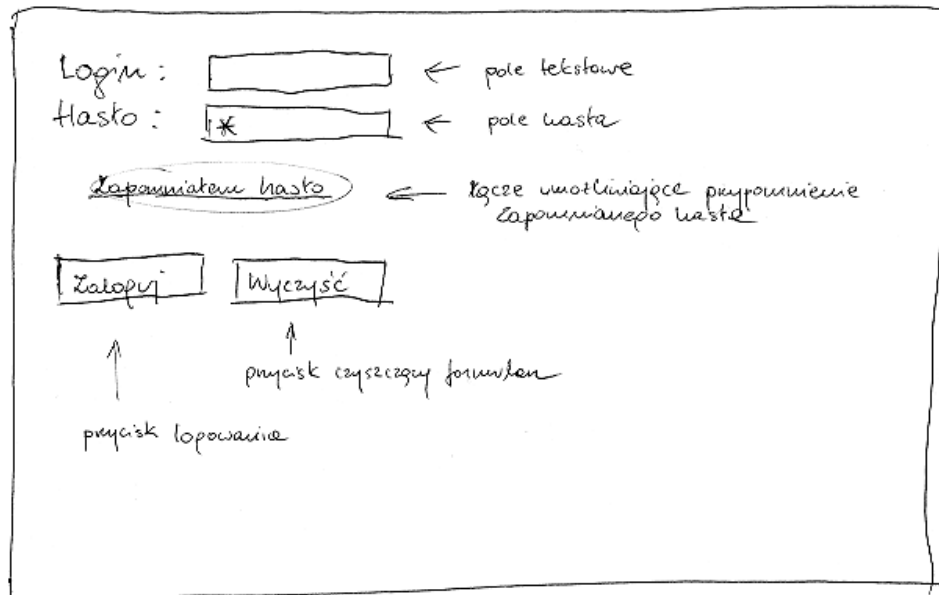 Login : ← pole tekstowe
Hasło : * ← pole hasła
Zapomniałem hasło ← łącze umożliwiające przypomnienie
zapomnianego hasła
Zaloguj Wyczyść
przycisk czyszczący formularz
przycisk logowania